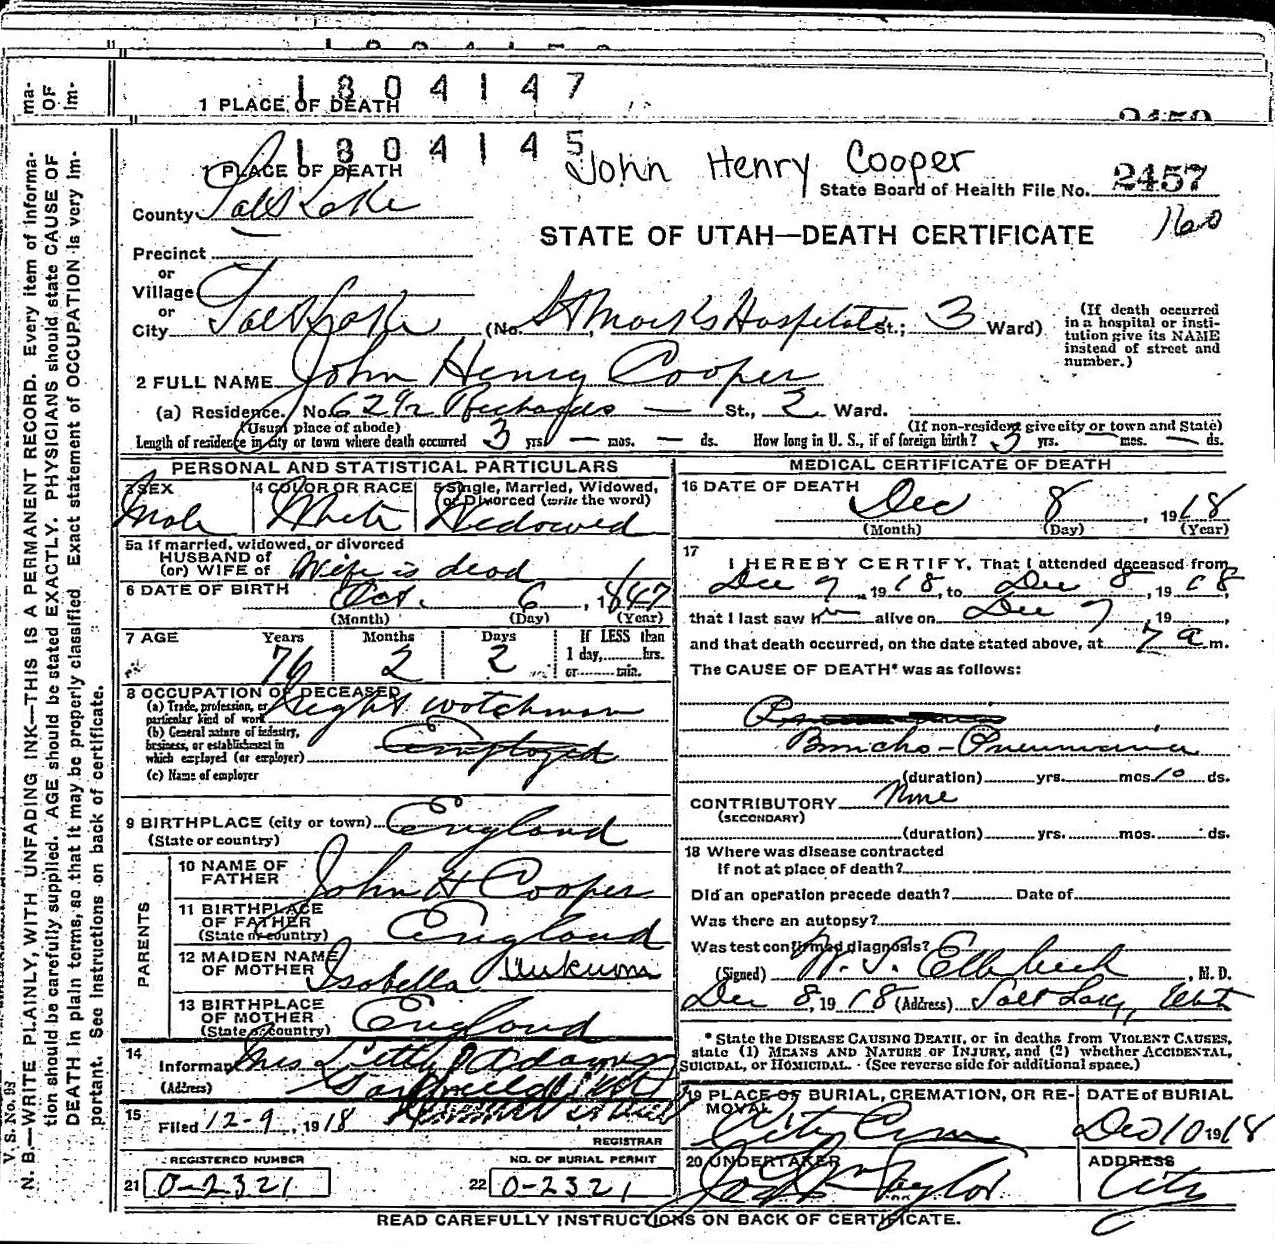 1304147
1 PLACE OF DEATH
2459
1304145
John Henry Cooper
1 PLACE OF DEATH
State Board of Health File No. 2457
County Salt Lake
160
STATE OF UTAH—DEATH CERTIFICATE
Precinct
or
Village
or
City Salt Lake (No. St Mark's Hospital St.; 3 Ward)
(If death occurred in a hospital or institution give its NAME instead of street and number.)
2 FULL NAME John Henry Cooper
(a) Residence. No. 629½ Richards — St., 2 Ward.
(Usual place of abode) (If non-resident give city or town and State)
Length of residence in city or town where death occurred 3 yrs. — mos. — ds. How long in U. S., if of foreign birth? 3 yrs. — mos. — ds.
PERSONAL AND STATISTICAL PARTICULARS
3 SEX Male
4 COLOR OR RACE White
5 Single, Married, Widowed, or Divorced (write the word) Widowed
5a If married, widowed, or divorced
HUSBAND of
(or) WIFE of Wife is dead
6 DATE OF BIRTH Oct. 6, 1847
(Month) (Day) (Year)
7 AGE Years Months Days If LESS than
76 2 2 1 day,......hrs.
or......min.
8 OCCUPATION OF DECEASED
(a) Trade, profession, or particular kind of work Night watchman
(b) General nature of industry, business, or establishment in which employed (or employer) Employed
(c) Name of employer
9 BIRTHPLACE (city or town) England
(State or country)
PARENTS
10 NAME OF FATHER John H Cooper
11 BIRTHPLACE OF FATHER England
(State or country)
12 MAIDEN NAME OF MOTHER Isabella Unknown
13 BIRTHPLACE OF MOTHER England
(State or country)
14 Informant Mrs Adams
(Address)
15 Filed 12-9, 1918
REGISTRAR
REGISTERED NUMBER NO. OF BURIAL PERMIT
21 0-2321 22 0-2321
MEDICAL CERTIFICATE OF DEATH
16 DATE OF DEATH Dec 8, 1918
(Month) (Day) (Year)
17 I HEREBY CERTIFY, That I attended deceased from
Dec 7, 1918, to Dec 8, 1918,
that I last saw him alive on Dec 7, 19
and that death occurred, on the date stated above, at 7 a m.
The CAUSE OF DEATH* was as follows:
Broncho-Pneumonia
(duration) yrs. mos. 10 ds.
CONTRIBUTORY None
(SECONDARY)
(duration) yrs. mos. ds.
18 Where was disease contracted
If not at place of death?
Did an operation precede death? Date of
Was there an autopsy?
Was test confirmed diagnosis?
(Signed) W. S. Ellerbeck, M. D.
Dec 8, 1918 (Address) Salt Lake, Utah
* State the DISEASE CAUSING DEATH, or in deaths from VIOLENT CAUSES,
state (1) MEANS AND NATURE OF INJURY, and (2) whether ACCIDENTAL,
SUICIDAL, or HOMICIDAL. (See reverse side for additional space.)
19 PLACE OF BURIAL, CREMATION, OR REMOVAL City Cem
DATE of BURIAL Dec 10 1918
20 UNDERTAKER Taylor
ADDRESS City
READ CAREFULLY INSTRUCTIONS ON BACK OF CERTIFICATE.
V. S. No. 93
N. B.—WRITE PLAINLY, WITH UNFADING INK—THIS IS A PERMANENT RECORD. Every item of informa-
tion should be carefully supplied. AGE should be stated EXACTLY. PHYSICIANS should state CAUSE OF
DEATH in plain terms, so that it may be properly classified. Exact statement of OCCUPATION is very im-
portant. See instructions on back of certificate.
ma-
OF
im-